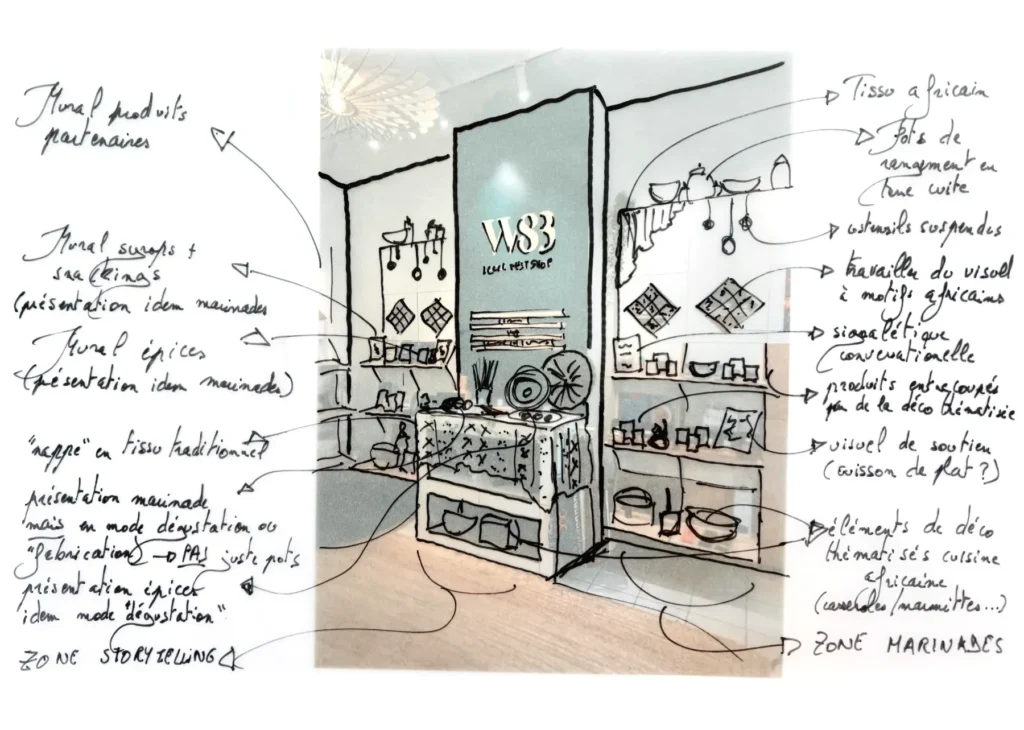 Mural produits
partenaires
Mural surops +
snackings
(présentation idem marinades
Mural épices
(présentation idem marinades)
"nappe" en tissu traditionnel
présentation marinade
mais en mode dégustation ou
"fabrication" → PAS juste pots
présentation épices
idem mode "dégustation"
ZONE STORYTELLING
W83
Tissu africain
Pots de
rangement en
terre cuite
ustensils suspendus
travailler du visuel
à motifs africains
signalétique
produits entrecoupés
par de la déco thématisée
visuel de soutien
(cuisson de plat ?)
éléments de déco
thématisés cuisine
africaine
(casseroles/marmittes...)
ZONE MARINADES